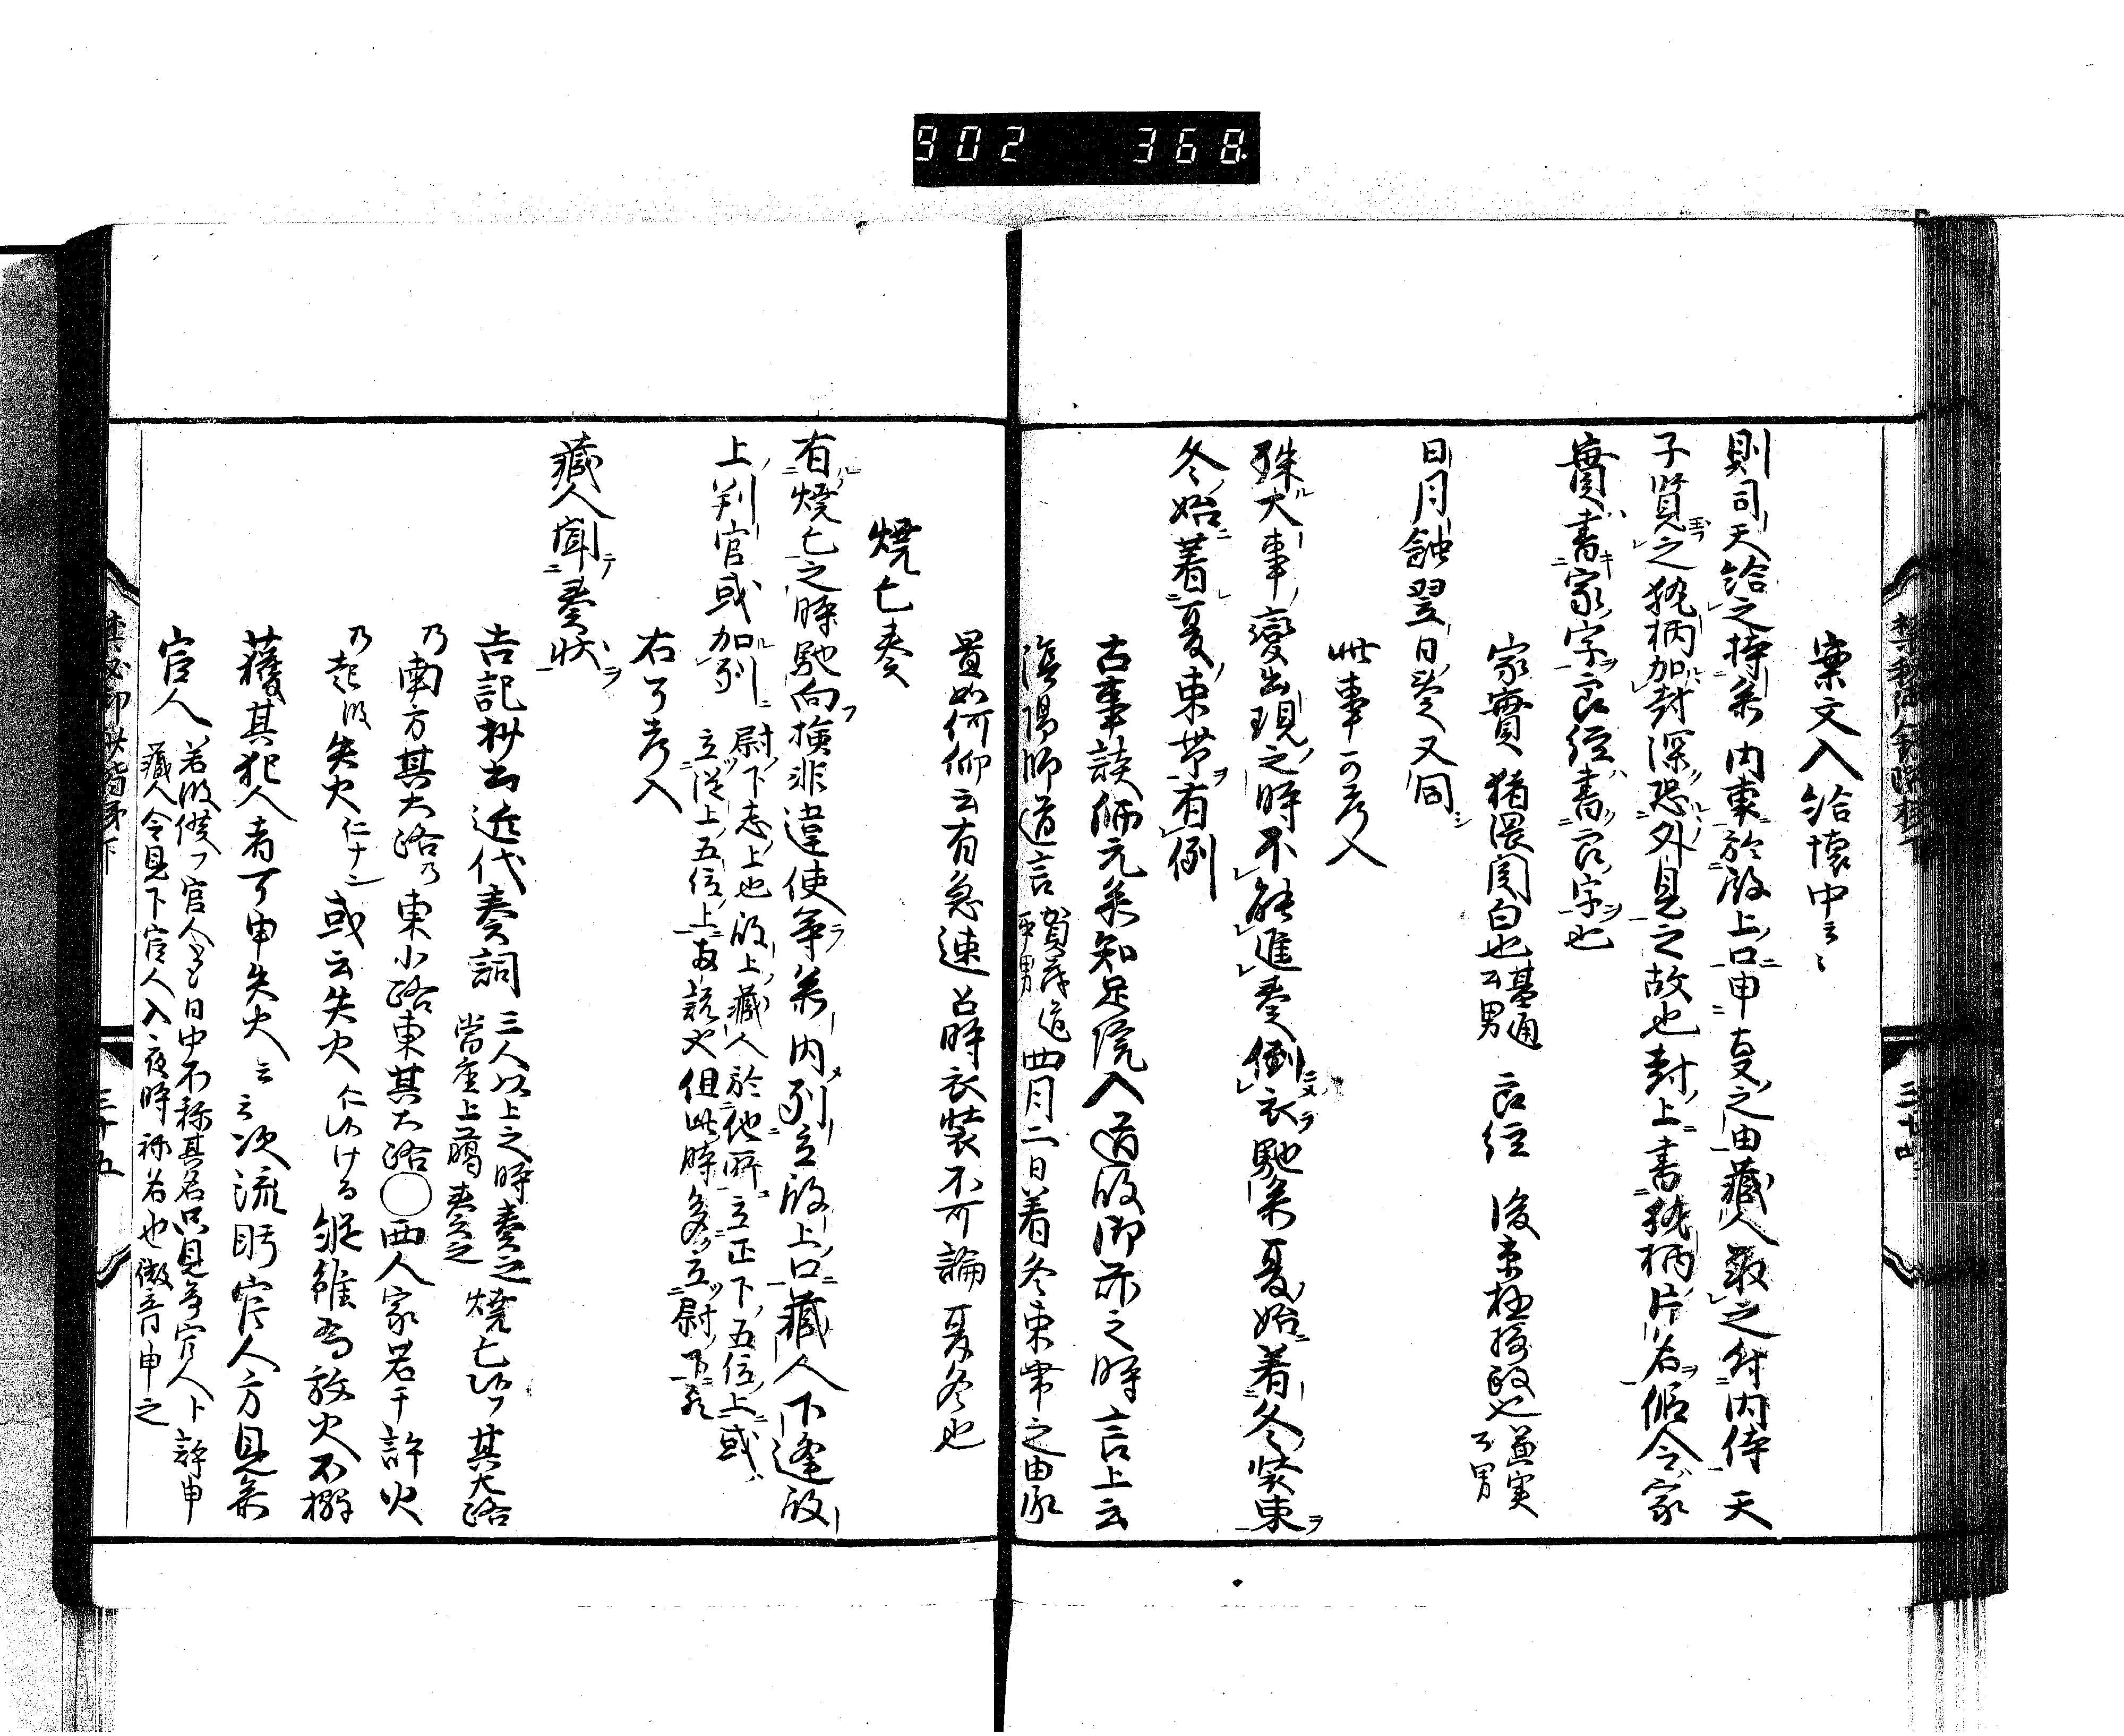 902 368
案文入給懐中云々
則司天給之持參内裏於殿上口申奏之由藏人取之付内侍天
子覽之執柄加封深恐外見之故也封上書執柄片名假令家
實書家字良經書良字也
家實 猪隈関白也基通公男 良經 後京極摂政也兼実公男
日月蝕翌日奏又同
此事可考入
殊大事變出現之時不能進奏倒衣馳參夏始着冬裝束
冬始着夏束帯有例
古事談師元参知足院入道殿御前之時言上云
陰陽師道言 賀茂道平男 四月二日着冬束帯之由承
置如何仰云有急速召時衣裝不可論夏冬也
焼亡奏
有焼亡之時馳向撿非違使等參内列立殿上口藏人下逢殿
上判官或加列 尉下志上也殿上藏人於他所立正下五位上或
立從上五位上両説也但此時多立尉下
右可考入
藏人聞奏状
吉記抄出近代奏詞 三人以上之時奏之
當座上﨟奏之 焼亡候フ其大路
乃南方其大路乃東小路東其大路〇西人家若干許火
乃起波失火仁ナ二或云失火仁候ける縦雖爲放火不搦
獲其犯人者可申失火云云次流眄官人方見參
官人 若殿候フ官人等日中不称其名只見参官人ト許申
藏人令見下官人入夜時称名也微音申之
三十四
三十五